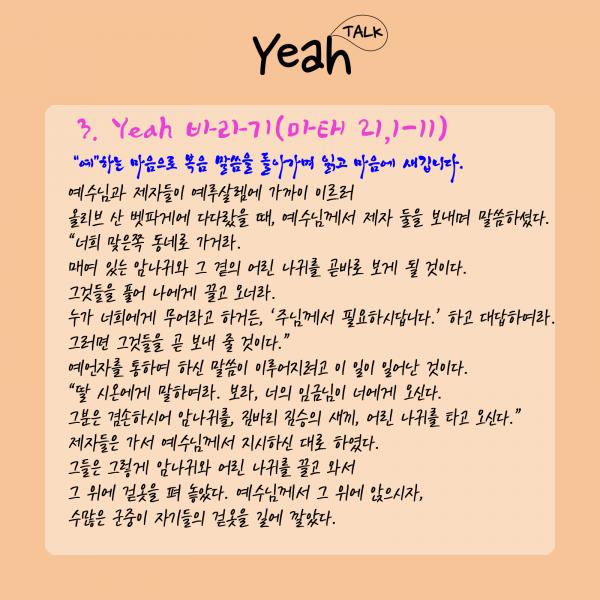 Yeah TALK
3. Yeah 바라기(마태 21,1-11)
"예"하는 마음으로 복음 말씀을 돌아가며 읽고 마음에 새깁니다.
예수님과 제자들이 예루살렘에 가까이 이르러
올리브 산 벳파게에 다다랐을 때, 예수님께서 제자 둘을 보내며 말씀하셨다.
“너희 맞은쪽 동네로 가거라.
매여 있는 암나귀와 그 곁의 어린 나귀를 곧바로 보게 될 것이다.
그것들을 풀어 나에게 끌고 오너라.
누가 너희에게 무어라고 하거든, ‘주님께서 필요하시답니다.’ 하고 대답하여라.
그러면 그것들을 곧 보내 줄 것이다.”
예언자를 통하여 하신 말씀이 이루어지려고 이 일이 일어난 것이다.
“딸 시온에게 말하여라. 보라, 너의 임금님이 너에게 오신다.
그분은 겸손하시어 암나귀를, 짐바리 짐승의 새끼, 어린 나귀를 타고 오신다.”
제자들은 가서 예수님께서 지시하신 대로 하였다.
그들은 그렇게 암나귀와 어린 나귀를 끌고 와서
그 위에 겉옷을 펴 놓았다. 예수님께서 그 위에 앉으시자,
수많은 군중이 자기들의 겉옷을 길에 깔았다.